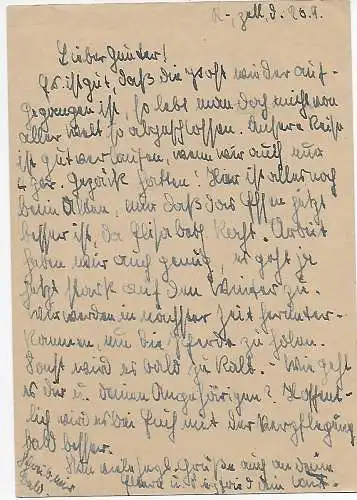 R-zell, d. 26.9.
Lieber Gunter!
Es ist gut, daß die Post wieder auf-
gegangen ist, so lebt man doch nicht von
aller Welt so abgeschlossen. Unsere Reise
ist gut verlaufen, wenn wir auch nur
4 Gepäck hatten! Hier ist alles noch
beim Alten, nur daß das Essen jetzt
besser ist, da Elisabeth kocht. Arbeit
haben wir auch genug, es geht ja
jetzt stark auf den Winter zu.
Wir werden in nächster Zeit herunter-
kommen, um die Pferde zu holen.
Sonst wird es bald zu kalt. - Wie geht
es dir u. deinen Angehörigen? Hoffent-
lich wird es bei Euch mit der Verpflegung
bald besser.
Nun viele herzl. Grüße auch an deine
Eltern u. dein
Schreibe mir
bald.